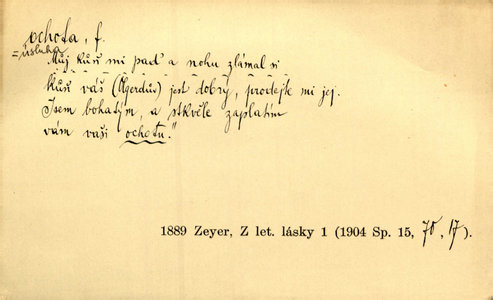 ochota, f.
= úsluha
"Můj kůň mi pad' a nohu zlámal si
Kůň váš (Olgerdův) jest dobrý, prodejte mi jej.
Jsem bohatým, a skvěle zaplatím
vám vaši ochotu."
1889 Zeyer, Z let. lásky 1 (1904 Sp. 15, 70, 17).